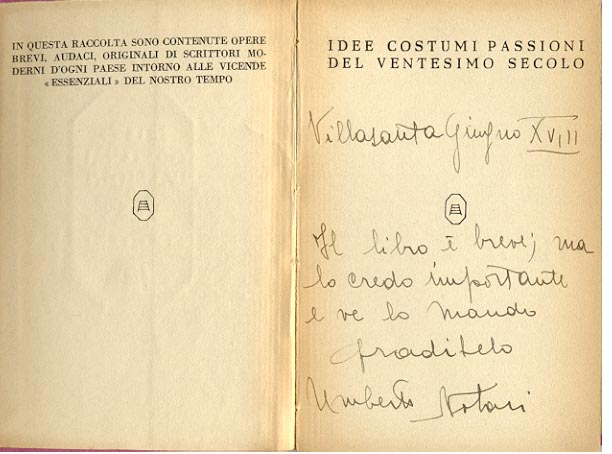 IN QUESTA RACCOLTA SONO CONTENUTE OPERE
BREVI, AUDACI, ORIGINALI DI SCRITTORI MO-
DERNI D'OGNI PAESE INTORNO ALLE VICENDE
« ESSENZIALI » DEL NOSTRO TEMPO
IDEE COSTUMI PASSIONI
DEL VENTESIMO SECOLO
Villasanta Giugno XVIII
Il libro è breve; ma
lo credo importante
e ve lo mando
graditelo
Umberto Notari